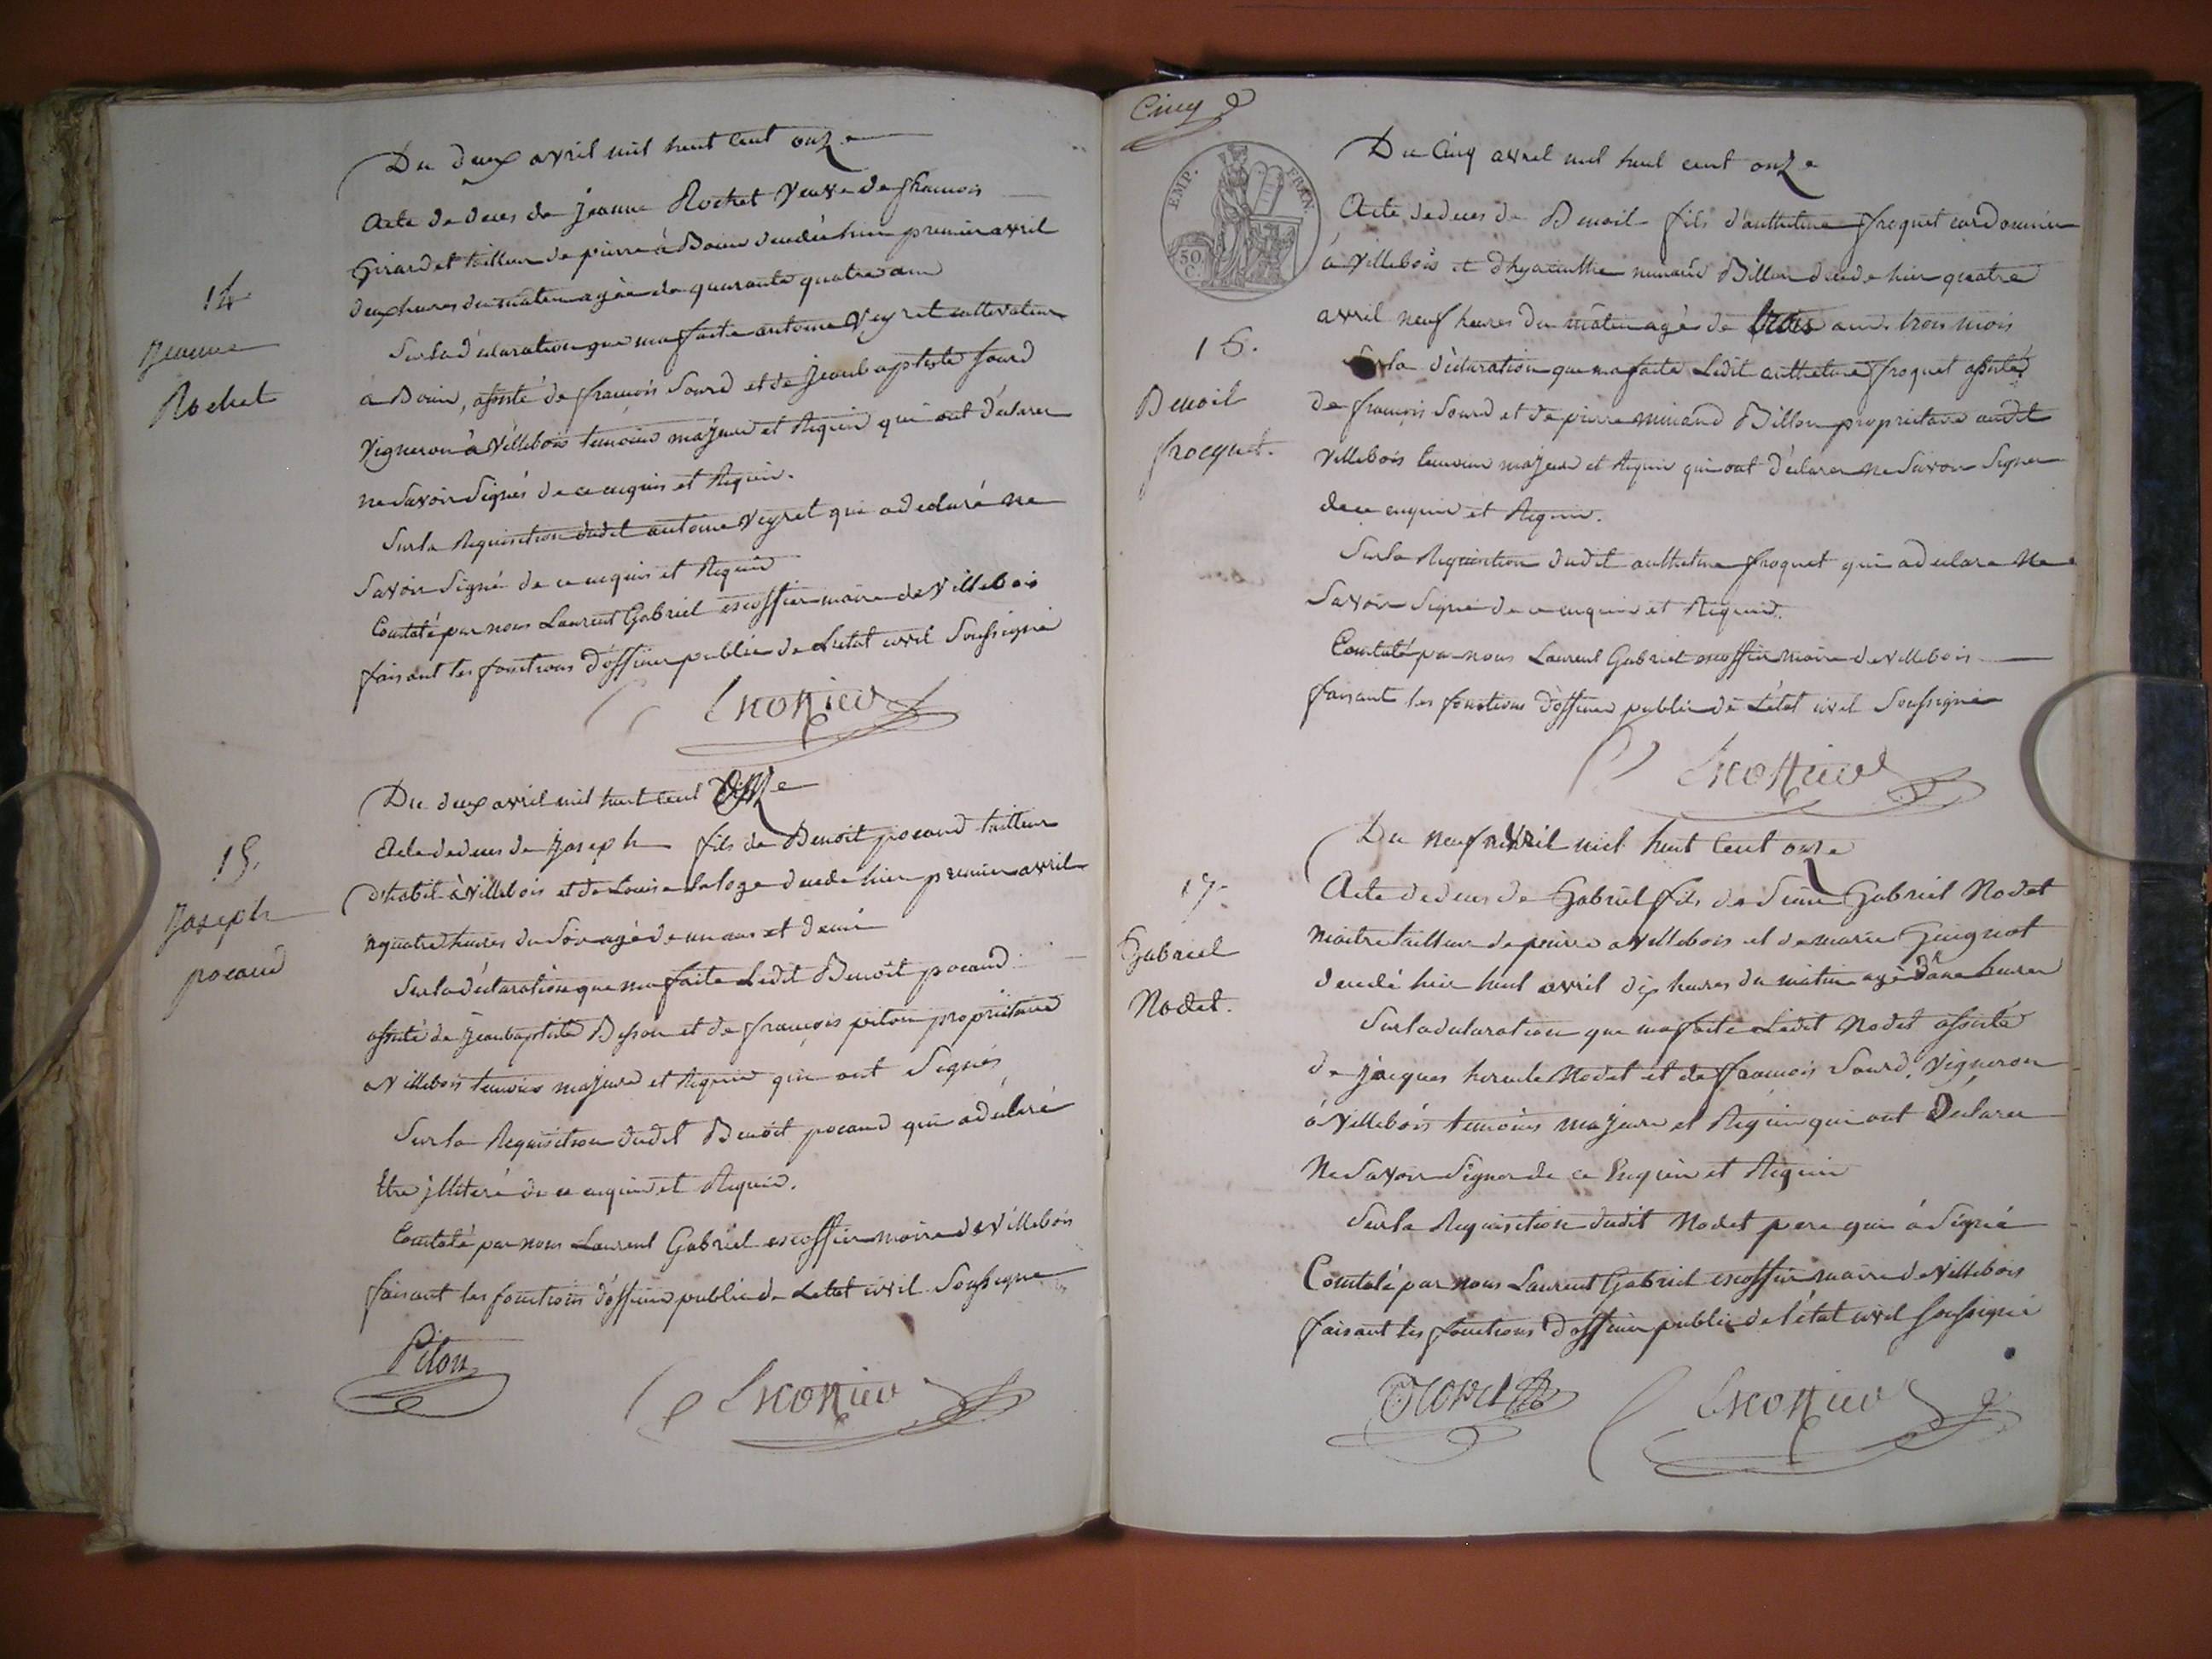 14
Jeanne
Rochet
Du deux avril mil huit cent onze
Acte de deces de Jeanne Rochet Veuve de francois
Girardet tailleur de pierre à Bouis decedée hier premier avril
deux heures du matin agée de quarante quatre ans
Sur la déclaration que ma faite antoine Veyret cultivateur
a Bouis, assisté de françois Sourd et de Jean baptiste Sourd
Vigneron à Villebois temoins majeurs et Requis qui ont déclarer
ne Savoir Signés de ce enquis et Requis.
Sur la Requisition dudit antoine Veyret qui a declaré ne
Savoir Signé de ce enquis et Requis
Constaté par nous Laurent Gabriel escoffier maire de Villebois
faisant les fonctions d'officier public de Letat civil Soussigné
Escoffier
15.
Joseph
pocaud
Du deux avril mil huit cent onze
Acte de deces de Joseph fils de Benoit pocaud tailleur
d'habit à Villebois et de Louise Laloge decede hier premier avril
a quatre heures du Soir agé de un ans et demi
Sur la déclaration que ma faite Ledit Benoit pocaud
assisté de Jean baptiste Besson et de françois piton propriétaire
a Villebois temoins majeurs et Requis qui ont Signés
Sur la Requisition dudit Benoit pocaud qui a déclaré
Etre jlliteré de ce enquis et Requis.
Constaté par nous Laurent Gabriel escoffier maire de Villebois
faisant les fonctions d'officier public de Letat civil Soussigné
Piton
Escoffier
Cinq
EMP. FRAN.
50 C.
16.
Benoit
froquet.
Du Cinq avril mil huit cent onze
Acte de deces de Benoit fils d'anthelme froquet cordonnier
à Villebois et d'hyacinthe minand Billon decede hier quatre
avril neuf heures du matin agé de trois ans trois mois
Sur la déclaration que ma faite Ledit anthelme froquet assisté
de françois Sourd et de pierre minand Billon propriétaire audit
Villebois temoins majeurs et Requis qui ont déclarer ne Savoir Signer
de ce enquis et Requis.
Sur la Requisition dudit anthelme froquet qui a declare ne
Savoir Signé de ce enquis et Requis.
Constaté par nous Laurent Gabriel escoffier maire de Villebois
faisant les fonctions d'officier public de L'état civil Soussigné
Escoffier
17.
Gabriel
Nodet.
Du neuf avril mil huit cent onze
Acte de deces de Gabriel fils de Sieur Gabriel Nodet
maitre tailleur de pierre a Villebois et de marie Guignot
decedé hier huit avril dix heures du matin agé d'une heure
Sur la declaration que ma faite Ledit Nodet assisté
de jacques hercule Nodet et de francois Sourd Vigneron
à Villebois temoins majeurs et Requis qui ont Déclarer
Ne Savoir Signer de ce Enquis et Requis
Sur la Requisition dudit Nodet pere qui à Signé
Constaté par nous Laurent Gabriel escoffier maire de Villebois
faisant les fonctions d'officier public de l'état civil Soussigné
Nodet
Escoffier